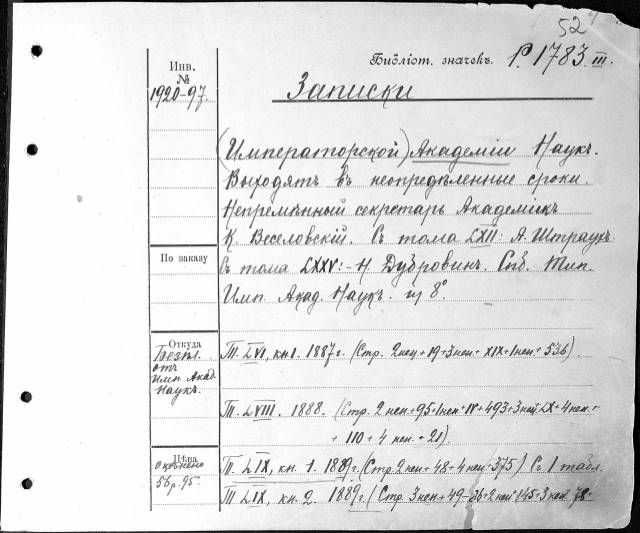 52
Библіот. значекъ. P. 1783. III.
Инв.
№
1920-97.
Записки
(Императорской) Академіи Наукъ.
Выходятъ въ неопредѣленные сроки.
Непремѣнный секретарь Академикъ
К. Веселовскій. Съ тома LXII: А. Штраухъ
По заказу
Съ тома LXXV: - Н. Дубровинъ. Спб. Тип.
Имп. Акад. Наукъ. 8°.
Откуда
Безпл.
отъ
Имп. Акад.
Наукъ.
Т. LVI, кн. 1. 1887 г. (Стр. 2 нен. + 19 + 3 нен. + XIX + 1 нен. + 536)
Т. LVIII. 1888. (Стр. 2 нен. + 95 + 1 нен. + IV + 493 + 3 нен. + LX + 4 нен. +
+ 110 + 4 нен. + 21).
Цѣна
оцѣнено
5 б р. 95.
Т. LIX, кн. 1. 1889 г. (Стр. 2 нен. + 48 + 4 нен. + 375) Съ 1 табл.
Т. LIX, кн. 2. 1889 г. (Стр. 3 нен. + 49-86 + 2 нен. + 145 + 3 нен. + 78 +